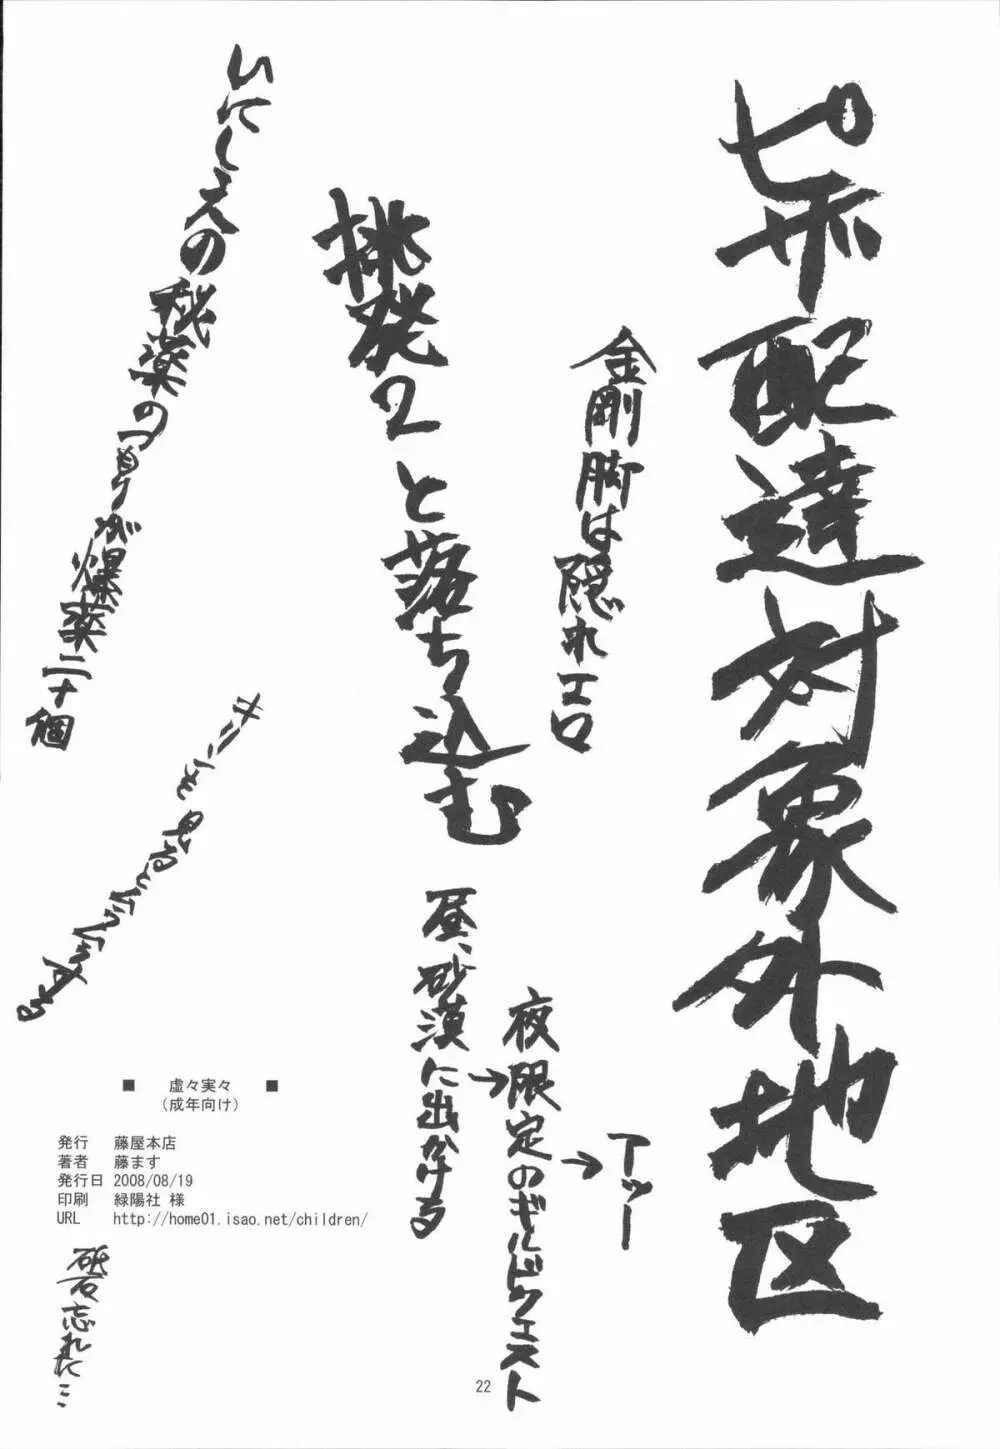 ピザ配達対象外地区
金剛脚は隠れエロ
挑発2と落ち込む
昼、砂漠に出かける
→夜限定のギルドクエスト
→アッー
いにしえの秘薬のつもりが爆薬二十個
キリンを見るとムラムラする
■ 虚々実々 ■
(成年向け)
発行 藤屋本店
著者 藤ます
発行日 2008/08/19
印刷 緑陽社 様
URL http://home01.isao.net/children/
砥石忘れた…
22